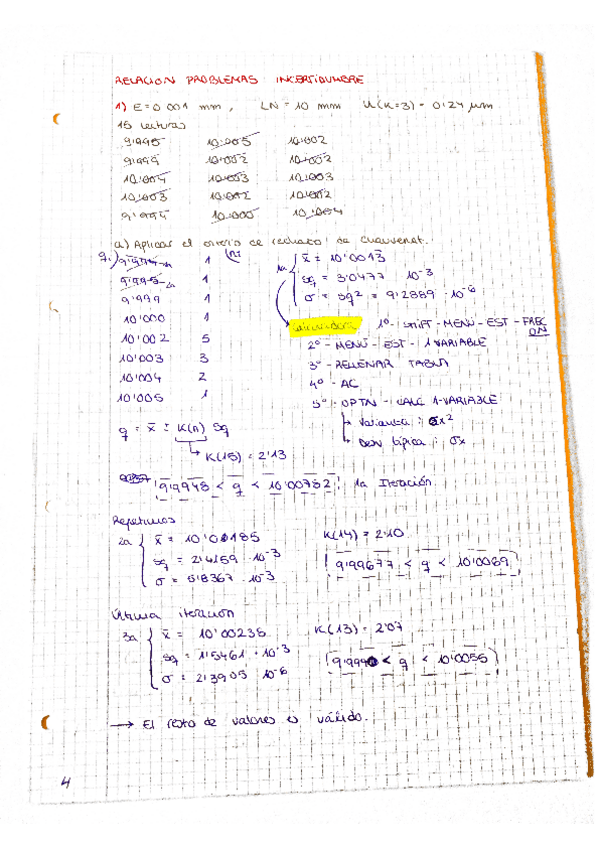 RELACION PROBLEMAS INCERTIDUMBRE
1) E=0'001 mm, LN = 10 mm U(K=3) = 0'24 μm
15 lecturas
9'995 10'005 10'002
9'999 10'002 10'002
10'004 10'003 10'003
10'003 10'002 10'002
9'994 10'000 10'004
a) Aplicar el criterio de rechazo de Chauvenet.
9'994 1a 1
9'995 2a 1
9'999 1
10'000 1
10'002 5
10'003 3
10'004 2
10'005 1
1a x̄ = 10'0013
sq = 3'0477 · 10⁻³
σ = sq² = 9'2889 · 10⁻⁶
Calculadora 1º - SHIFT - MENU - EST - FREC ON
2º - MENU - EST - 1 VARIABLE
3º - RELLENAR TABLA
4º - AC
5º - OPTN - CALC 1-VARIABLE
Varianza : σx²
Desv típica : σx
q = x̄ ± K(n) sq
K(15) = 2'13
9'9948 < q < 10'00782 1a Iteración
Repetimos
2a x̄ = 10'00185 K(14) = 2'10
sq = 2'4159 · 10⁻³ 9'99677 < q < 10'0069
σ = 5'8367 · 10⁻³
Última iteración
3a x̄ = 10'00235 K(13) = 2'07
sq = 1'5461 · 10⁻³ < q < 10'0055
σ = 2'3905 10⁻⁶
→ El resto de valores es válido.
4